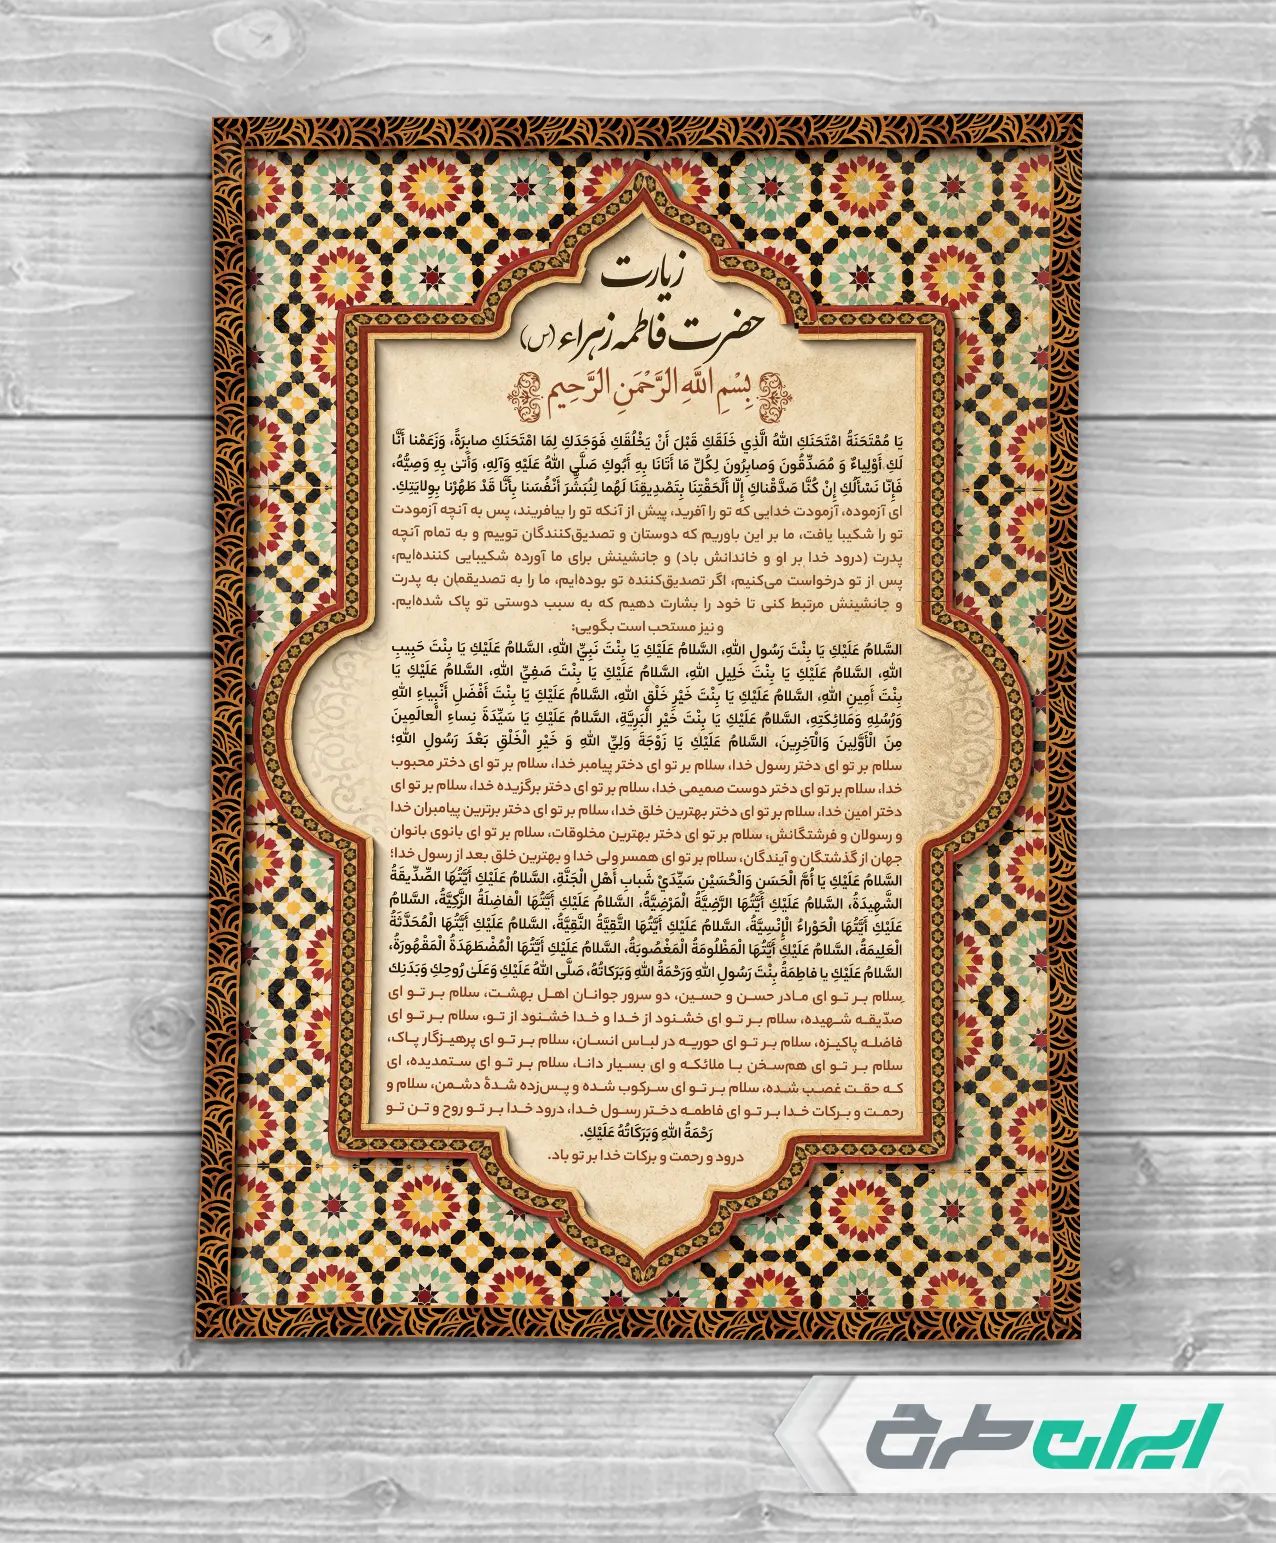 زیارت
حضرت فاطمه زهراء (س)
بِسْمِ اللَّهِ الرَّحْمَنِ الرَّحِيم
يَا مُمْتَحَنَةُ امْتَحَنَكِ اللهُ الَّذِي خَلَقَكِ قَبْلَ أَنْ يَخْلُقَكِ فَوَجَدَكِ لِمَا امْتَحَنَكِ صابِرَةً، وَزَعَمْنا أَنَّا
لَكِ أَوْلِياءٌ وَ مُصَدِّقُونَ وَصابِرُونَ لِكُلِّ مَا أَتَانَا بِهِ أَبُوكِ صَلَّى اللهُ عَلَيْهِ وَآلِهِ، وَأَتىٰ بِهِ وَصِيُّهُ،
فَإِنّا نَسْأَلُكِ إِنْ كُنَّا صَدَّقْناكِ إِلّا أَلْحَقْتِنَا بِتَصْدِيقِنَا لَهُما لِنُبَشِّرَ أَنْفُسَنا بِأَنَّا قَدْ طَهُرْنا بِوِلايَتِكِ.
ای آزموده، آزمودت خدایی که تو را آفرید، پیش از آنکه تو را بیافریند، پس به آنچه آزمودت
تو را شکیبا یافت، ما بر این باوریم که دوستان و تصدیق‌کنندگان توییم و به تمام آنچه
پدرت (درود خدا بر او و خاندانش باد) و جانشینش برای ما آورده شکیبایی کننده‌ایم،
پس از تو درخواست می‌کنیم، اگر تصدیق‌کننده تو بوده‌ایم، ما را به تصدیقمان به پدرت
و جانشینش مرتبط کنی تا خود را بشارت دهیم که به سبب دوستی تو پاک شده‌ایم.
و نیز مستحب است بگویی:
السَّلامُ عَلَيْكِ يَا بِنْتَ رَسُولِ اللهِ، السَّلامُ عَلَيْكِ يَا بِنْتَ نَبِيِّ اللهِ، السَّلامُ عَلَيْكِ يَا بِنْتَ حَبِيبِ
اللهِ، السَّلامُ عَلَيْكِ يَا بِنْتَ خَلِيلِ اللهِ، السَّلامُ عَلَيْكِ يَا بِنْتَ صَفِيِّ اللهِ، السَّلامُ عَلَيْكِ يَا
بِنْتَ أَمِينِ اللهِ، السَّلامُ عَلَيْكِ يَا بِنْتَ خَيْرِ خَلْقِ اللهِ، السَّلامُ عَلَيْكِ يَا بِنْتَ أَفْضَلِ أَنْبِياءِ اللهِ
وَرُسُلِهِ وَمَلائِكَتِهِ، السَّلامُ عَلَيْكِ يَا بِنْتَ خَيْرِ الْبَرِيَّةِ، السَّلامُ عَلَيْكِ يَا سَيِّدَةَ نِساءِ الْعالَمِينَ
مِنَ الْأَوَّلِينَ وَالْآخِرِينَ، السَّلامُ عَلَيْكِ يَا زَوْجَةَ وَلِيِّ اللهِ وَ خَيْرِ الْخَلْقِ بَعْدَ رَسُولِ اللهِ؛
سلام بر تو ای دختر رسول خدا، سلام بر تو ای دختر پیامبر خدا، سلام بر تو ای دختر محبوب
خدا، سلام بر تو ای دختر دوست صمیمی خدا، سلام بر تو ای دختر برگزیده خدا، سلام بر تو ای
دختر امین خدا، سلام بر تو ای دختر بهترین خلق خدا، سلام بر تو ای دختر برترین پیامبران خدا
و رسولان و فرشتگانش، سلام بر تو ای دختر بهترین مخلوقات، سلام بر تو ای بانوی بانوان
جهان از گذشتگان و آیندگان، سلام بر تو ای همسر ولی خدا و بهترین خلق بعد از رسول خدا؛
السَّلامُ عَلَيْكِ يَا أُمَّ الْحَسَنِ وَالْحُسَيْنِ سَيِّدَيْ شَبابِ أَهْلِ الْجَنَّةِ، السَّلامُ عَلَيْكِ أَيَّتُهَا الصِّدِّيقَةُ
الشَّهِيدَةُ، السَّلامُ عَلَيْكِ أَيَّتُهَا الرَّضِيَّةُ الْمَرْضِيَّةُ، السَّلامُ عَلَيْكِ أَيَّتُهَا الْفاضِلَةُ الزَّكِيَّةُ، السَّلامُ
عَلَيْكِ أَيَّتُهَا الْحَوْراءُ الْإِنْسِيَّةُ، السَّلامُ عَلَيْكِ أَيَّتُهَا التَّقِيَّةُ النَّقِيَّةُ، السَّلامُ عَلَيْكِ أَيَّتُهَا الْمُحَدَّثَةُ
الْعَلِيمَةُ، السَّلامُ عَلَيْكِ أَيَّتُهَا الْمَظْلُومَةُ الْمَغْصُوبَةُ، السَّلامُ عَلَيْكِ أَيَّتُهَا الْمُضْطَهَدَةُ الْمَقْهُورَةُ،
السَّلامُ عَلَيْكِ يا فاطِمَةُ بِنْتَ رَسُولِ اللهِ وَرَحْمَةُ اللهِ وَبَرَكاتُهُ، صَلَّى اللهُ عَلَيْكِ وَعَلَىٰ رُوحِكِ وَبَدَنِكِ
سلام بر تو ای مادر حسن و حسین، دو سرور جوانان اهل بهشت، سلام بر تو ای
صدّیقه شهیده، سلام بر تو ای خشنود از خدا و خدا خشنود از تو، سلام بر تو ای
فاضله پاکیزه، سلام بر تو ای حوریه در لباس انسان، سلام بر تو ای پرهیزگار پاک،
سلام بر تو ای هم‌سخن با ملائکه و ای بسیار دانا، سلام بر تو ای ستمدیده، ای
که حقت غصب شده، سلام بر تو ای سرکوب شده و پس‌زده شدهٔ دشمن، سلام و
رحمت و برکات خدا بر تو ای فاطمه دختر رسول خدا، درود خدا بر تو روح و تن تو
رَحْمَةُ اللهِ وَبَرَكَاتُهُ عَلَيْكِ.
درود و رحمت و برکات خدا بر تو باد.
ایران طرح